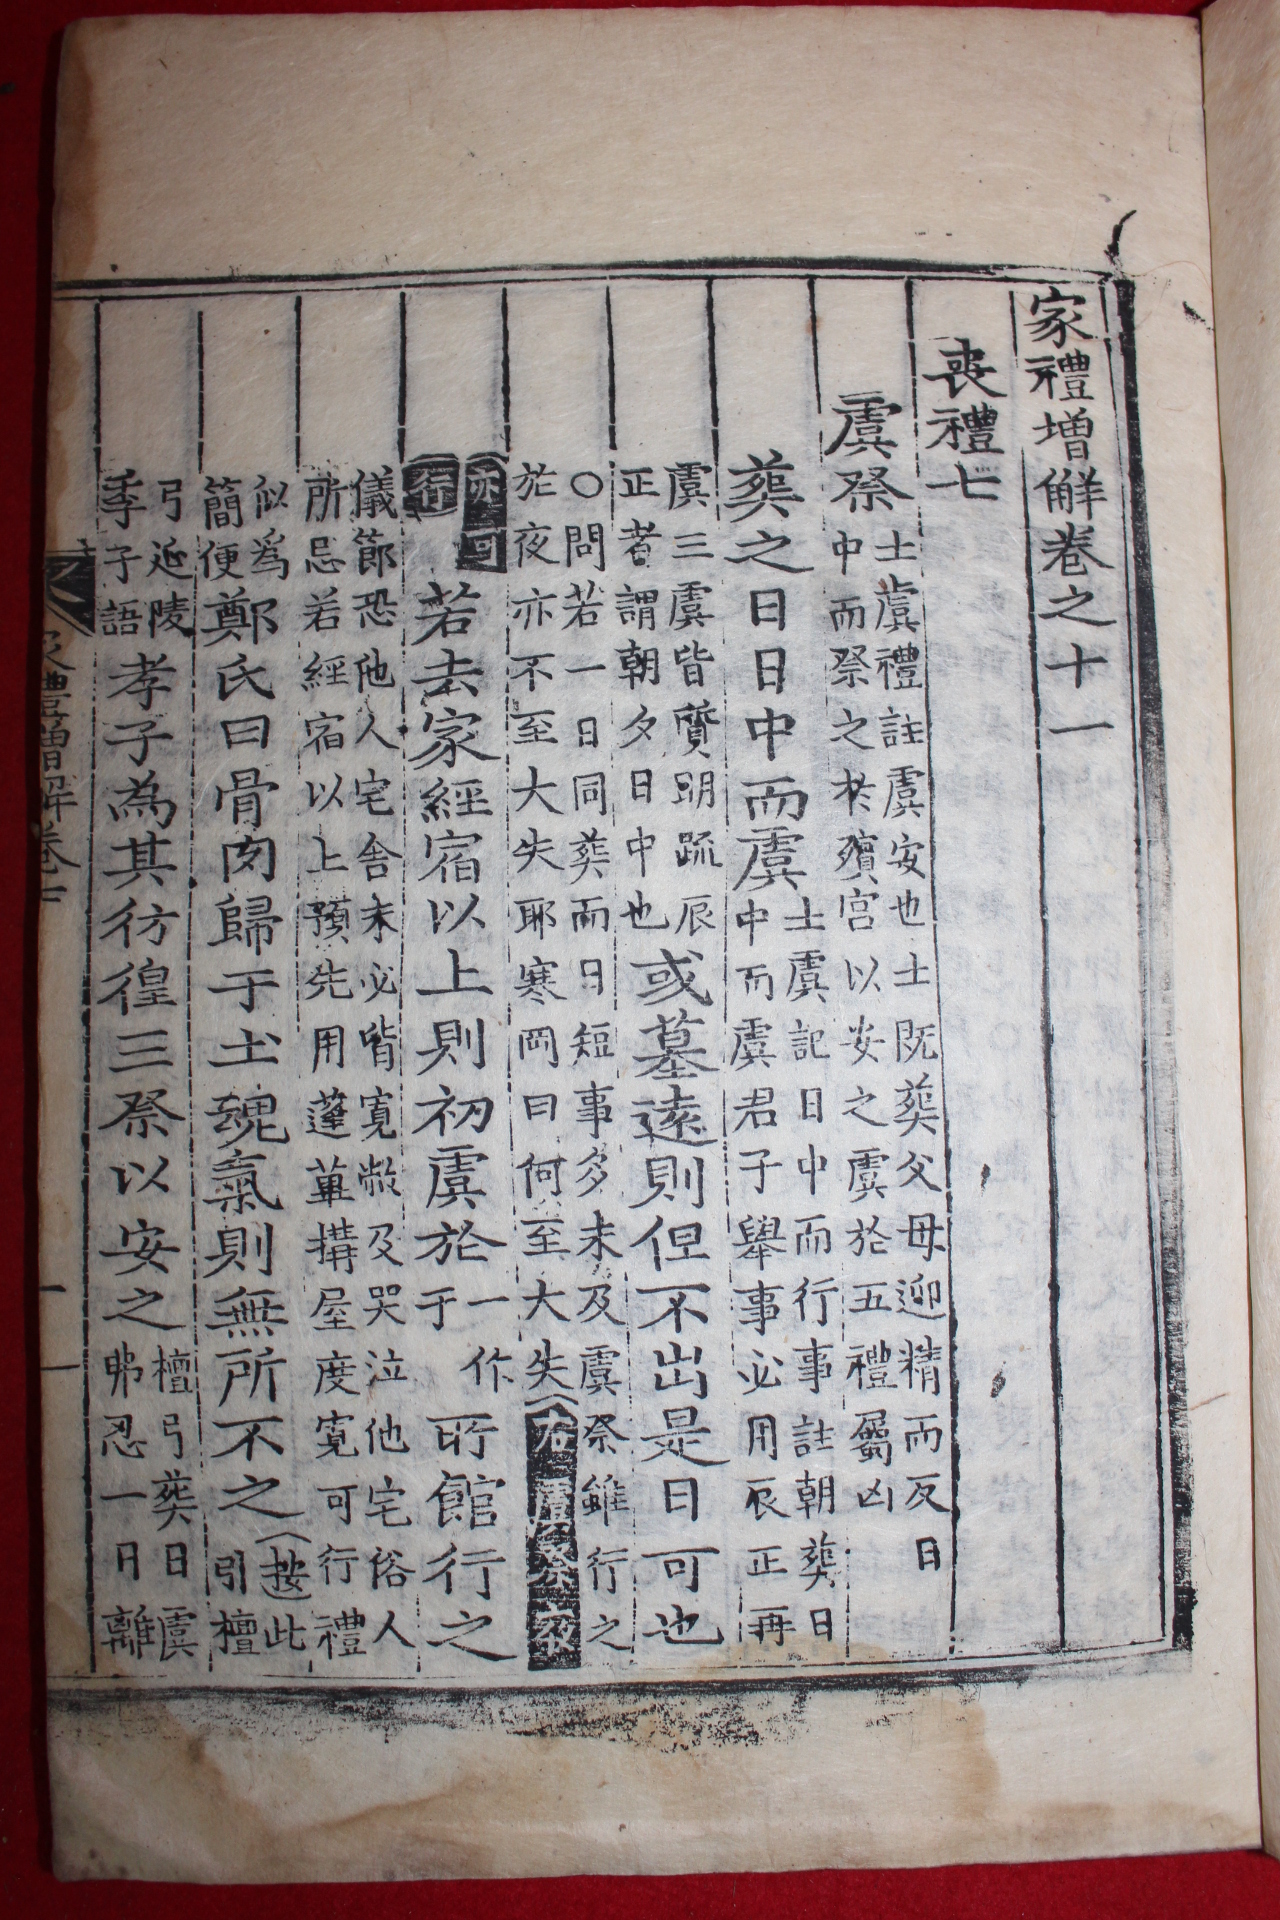 家禮增解卷之十一
喪禮七
虞祭士虞禮註虞安也士既葬父母迎精而反日
中而祭之於殯宮以安之虞於五禮屬凶
葬之日日中而虞士虞記日中而行事註朝葬日
中而虞君子舉事必用辰正再
虞三虞皆質明疏辰
正者謂朝夕日中也或墓遠則但不出是日可也
○問若一日同葬而日短事多未及虞祭雖行之
於夜亦不至大失耶寒岡曰何至大失右虞祭夜
亦可
行若去家經宿以上則初虞於一作
于所館行之
儀節恐他人宅舍未必皆寬敞及哭泣他宅俗人
所忌若經宿以上預先用蓬葦搆屋度寬可行禮
似爲
簡便鄭氏曰骨肉歸于土魂氣則無所不之按此
引檀
弓延陵
季子語孝子為其彷徨三祭以安之檀弓葬日虞
弗忍一日離
家禮增解卷十一